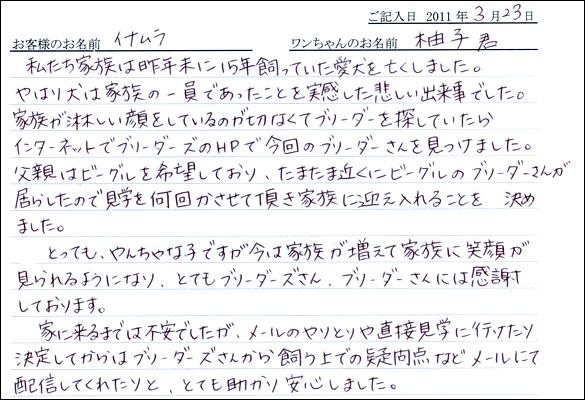 ご記入日 2011 年 3 月 23 日
お客様のお名前 イナムラ ワンちゃんのお名前 柚子君
私たち家族は昨年末に15年飼っていた愛犬を亡くしました。
やはり犬は家族の一員であったことを実感した悲しい出来事でした。
家族が淋しい顔をしているのが切なくてブリーダーを探していたら
インターネットでブリーダーズのHPで今回のブリーダーさんを見つけました。
父親はビーグルを希望しており、たまたま近くにビーグルのブリーダーさんが
居らしたので見学を何回かさせて頂き家族に迎え入れることを 決め
ました。
とっても、やんちゃな子ですが今は家族が増えて家族に笑顔が
見られるようになり、とてもブリーダーズさん、ブリーダーさんには感謝
しております。
家に来るまでは不安でしたが、メールのやりとりや直接見学に行けたり
決定してからはブリーダーズさんから飼う上での疑問点などメールにて
配信してくれたりと、とても助かり安心しました。